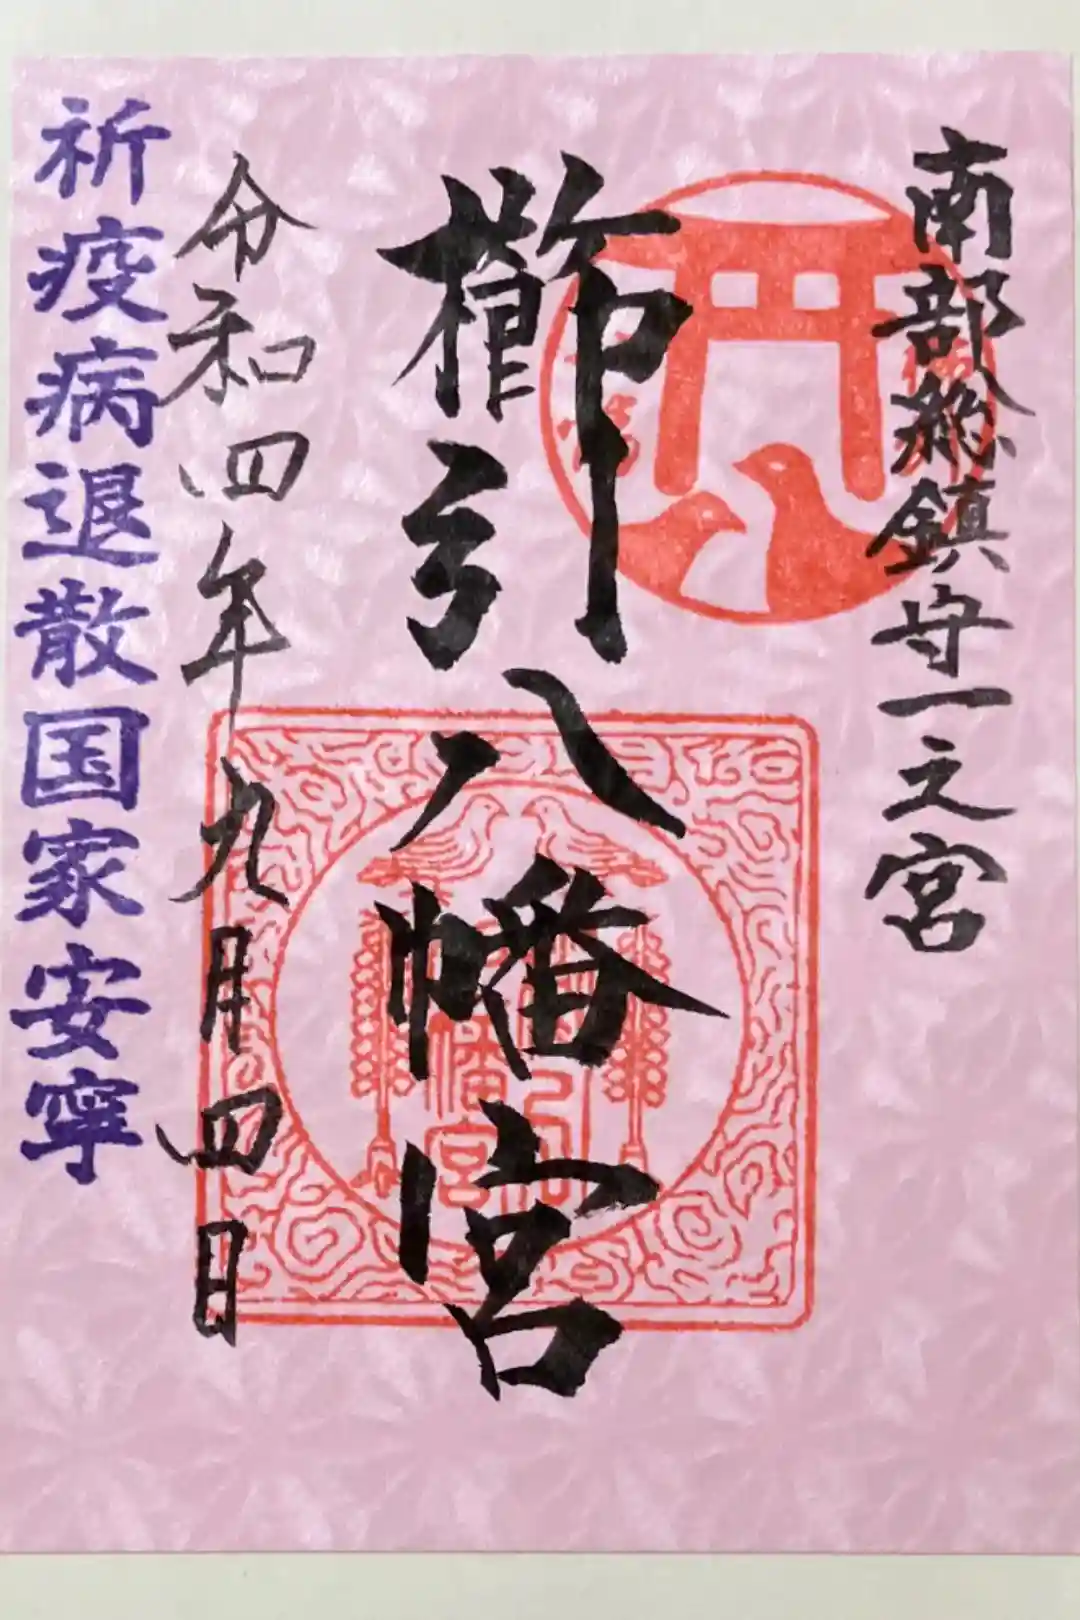 南部総鎮守一之宮
櫛引八幡宮
令和四年九月四日
祈疫病退散国家安寧